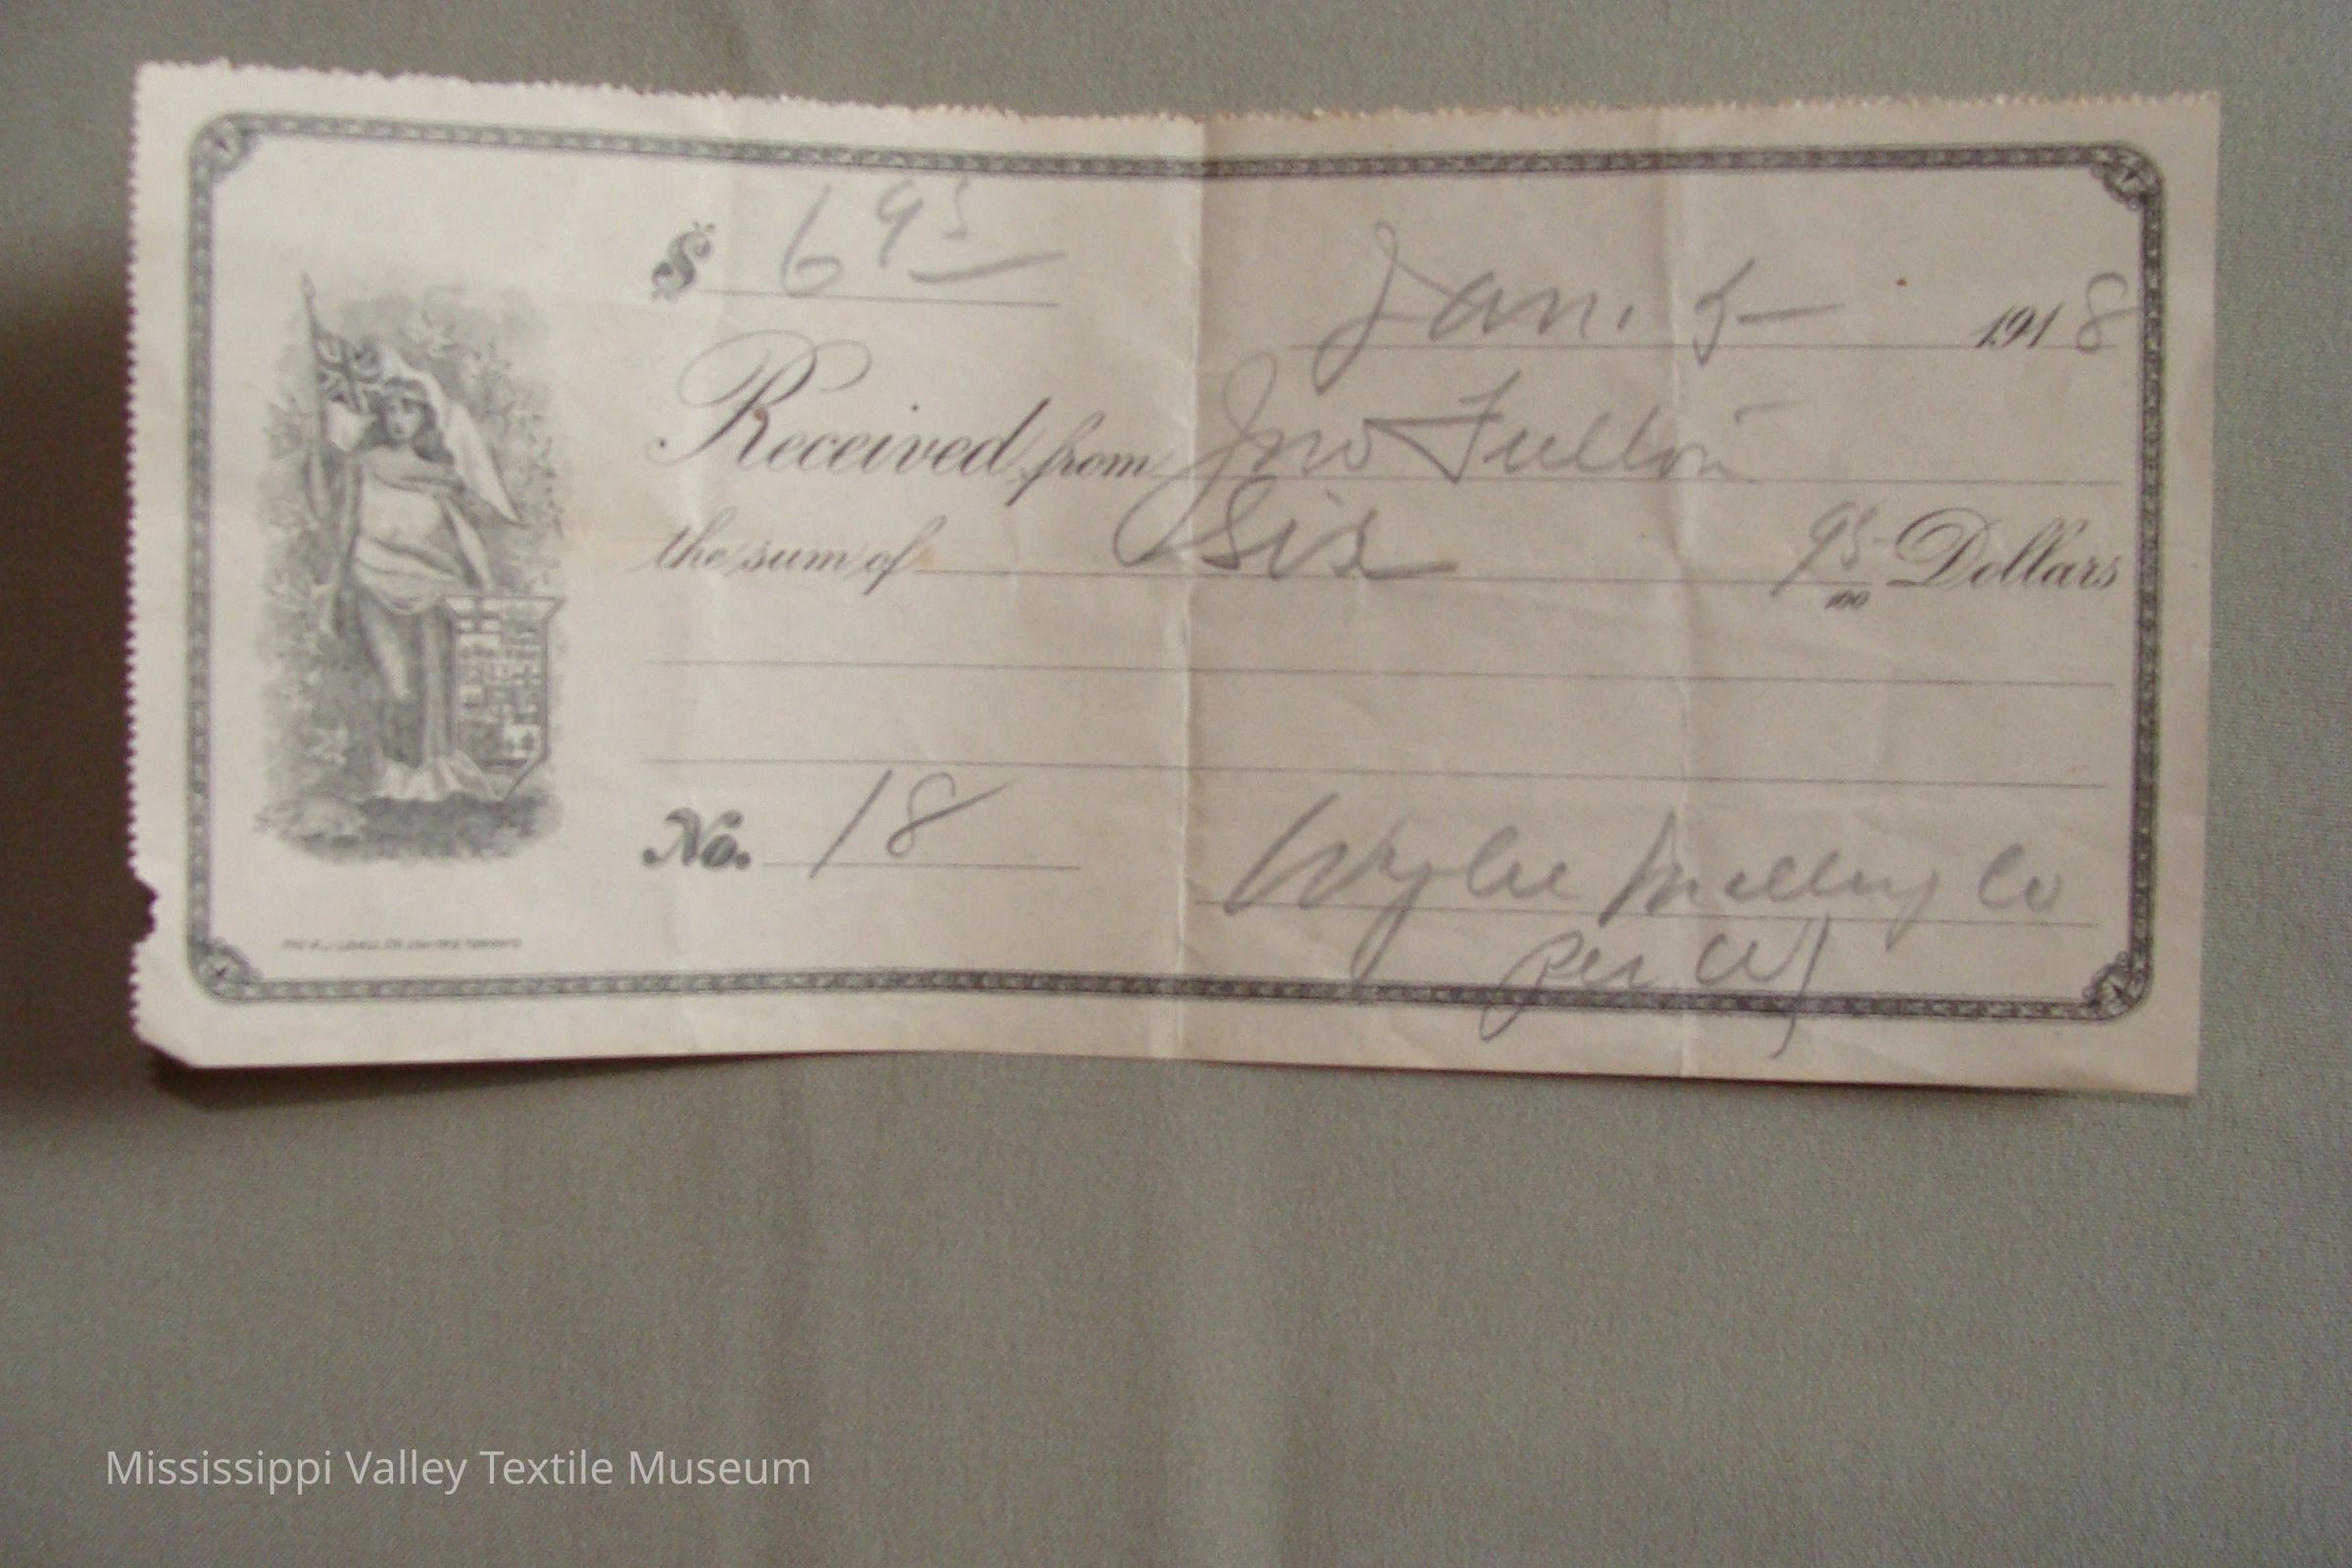 $ 6 95
Jan. 5 1918
Received from Jno Fulton
the sum of Six 95/100 Dollars
No. 18
Wylie Milling Co
Per W
Mississippi Valley Textile Museum